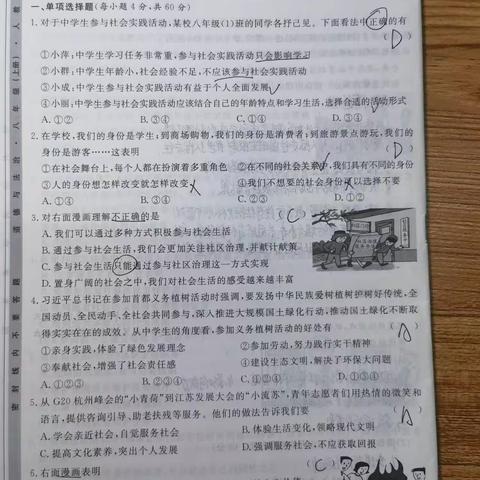 一、单项选择题(每小题4分,共60分)
1.对于中学生参与社会实践活动,某校八年级(1)班的同学各抒己见。下面看法中正确的有
(D)
①小萍:中学生学习任务非常重,参与社会实践活动只会影响学习
②小群:中学生年龄小,社会经验不足,不应该参与社会实践活动
③小成:中学生参与社会实践活动有益于个人全面发展
④小丽:中学生参与社会实践活动应该结合自己的年龄特点和学习生活,选择合适的活动形式
A.①② B.①③ C.②④ D.③④
2.在学校,我们的身份是学生;到商场购物,我们的身份是消费者;到旅游景点游玩,我们的
身份是游客……这表明 (D)
①在社会舞台上,每个人都在扮演着多重角色 ②在不同的社会关系中,我们具有不同的身份
③人的身份想怎样改变就怎样改变 ④我们不想要的社会身份可以选择不要
A.③④ B.②③ C.①④ D.①②
3.对右面漫画理解不正确的是 (C)
A.我们可以通过多种方式积极参与社会生活
B.通过参与社会生活,我们会更加关注社区治理,并献计献策
C.参与社会生活只能通过参与社区治理这一方式实现
D.置身广阔的社会之中,我们对社会生活的感受越来越丰富
4.习近平总书记在参加首都义务植树活动时强调,要发扬中华民族爱树植树护树好传统,全
国动员、全民动手、全社会共同参与,深入推进大规模国土绿化行动,推动国土绿化不断取
得实实在在的成效。从中学生的角度看,参加义务植树活动的好处有 (A)
①亲身实践,体验了绿色发展理念 ②参加劳动,努力践行实干精神
③奉献社会,增强了社会责任感 ④建设生态文明,解决了环保大问题
A.①②③ B.①②④ C.①③④ D.②③④
5.从G20杭州峰会的“小青荷”到江苏发展大会的“小流苏”,青年志愿者们用热情的微笑和
语言,提供咨询引导、助老扶残等服务。他们的做法告诉我们要 (A)
A.学会亲近社会,自觉服务社会 B.体验生活变化,领略现代文明
C.提高文化素养,突出个人发展 D.强调服务社会,不应获取回报
6.右面漫画表明 (C)
道德与法治·八年级(上册)·人教
密封线内不要答题